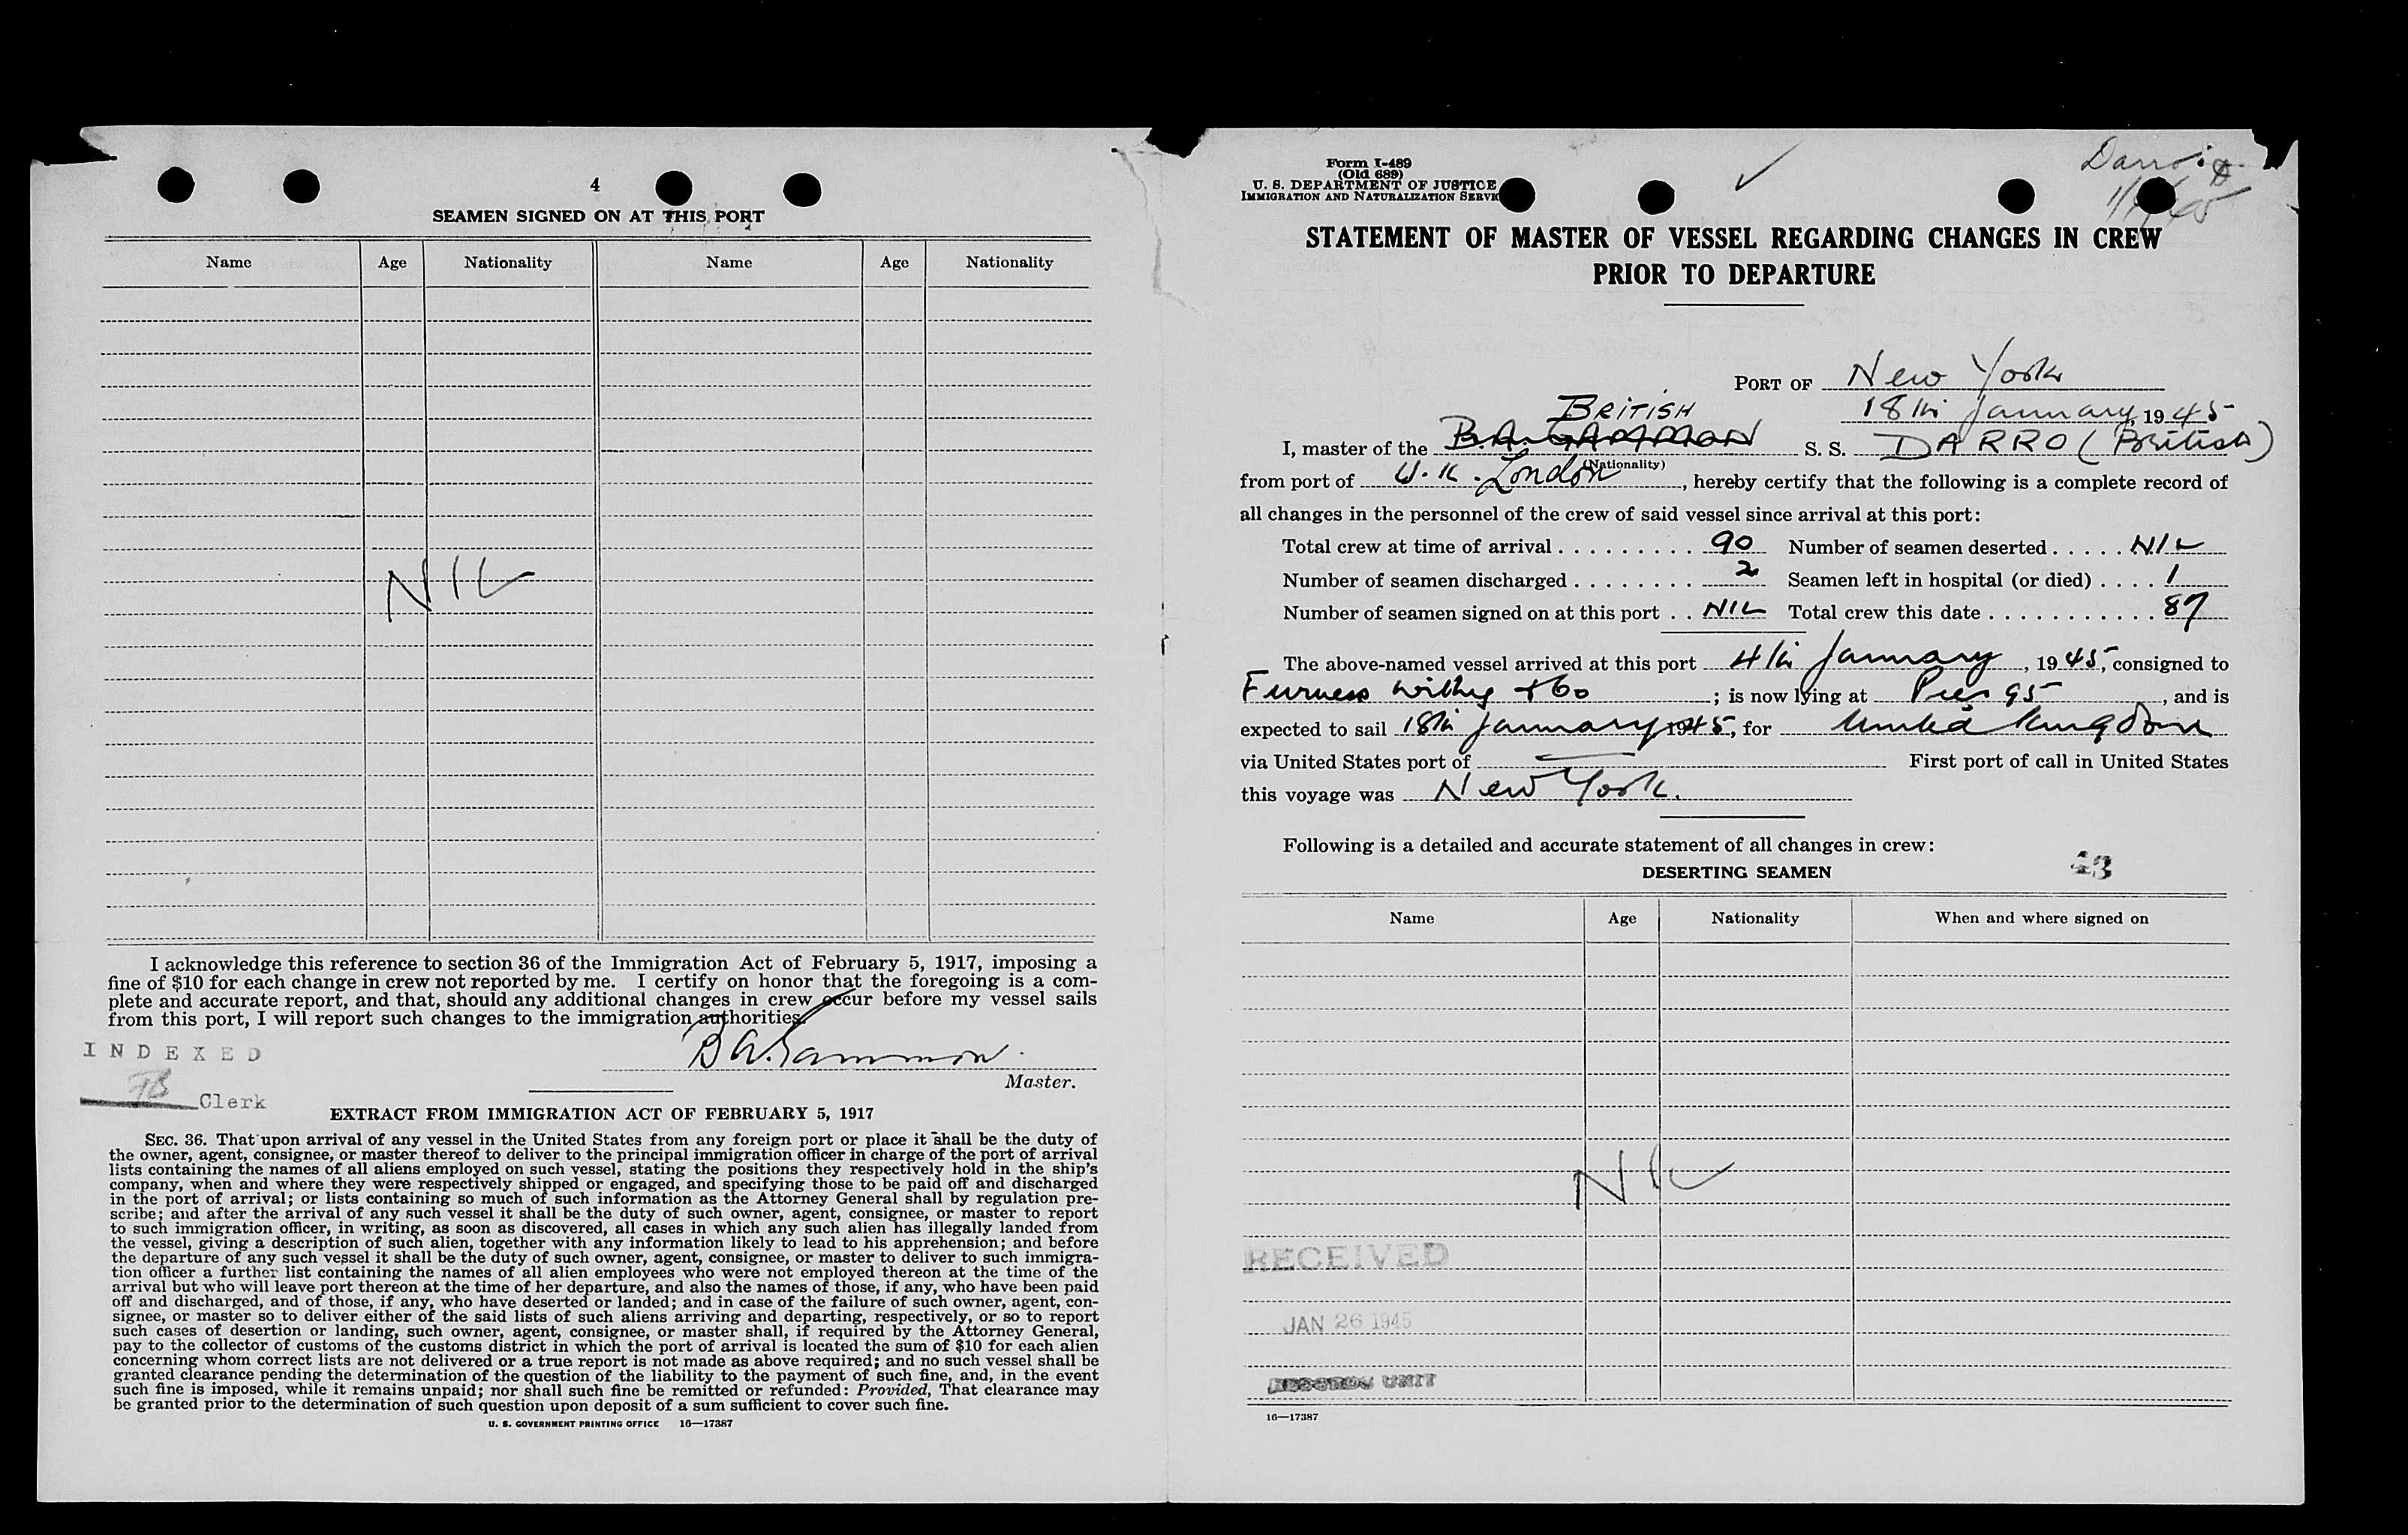 4
SEAMEN SIGNED ON AT THIS PORT
Name Age Nationality Name Age Nationality
NIL
I acknowledge this reference to section 36 of the Immigration Act of February 5, 1917, imposing a
fine of $10 for each change in crew not reported by me. I certify on honor that the foregoing is a com-
plete and accurate report, and that, should any additional changes in crew occur before my vessel sails
from this port, I will report such changes to the immigration authorities.
B A. Gammon.
Master.
INDEXED
Clerk
EXTRACT FROM IMMIGRATION ACT OF FEBRUARY 5, 1917
SEC. 36. That upon arrival of any vessel in the United States from any foreign port or place it shall be the duty of
the owner, agent, consignee, or master thereof to deliver to the principal immigration officer in charge of the port of arrival
lists containing the names of all aliens employed on such vessel, stating the positions they respectively hold in the ship's
company, when and where they were respectively shipped or engaged, and specifying those to be paid off and discharged
in the port of arrival; or lists containing so much of such information as the Attorney General shall by regulation pre-
scribe; and after the arrival of any such vessel it shall be the duty of such owner, agent, consignee, or master to report
to such immigration officer, in writing, as soon as discovered, all cases in which any such alien has illegally landed from
the vessel, giving a description of such alien, together with any information likely to lead to his apprehension; and before
the departure of any such vessel it shall be the duty of such owner, agent, consignee, or master to deliver to such immigra-
tion officer a further list containing the names of all alien employees who were not employed thereon at the time of the
arrival but who will leave port thereon at the time of her departure, and also the names of those, if any, who have been paid
off and discharged, and of those, if any, who have deserted or landed; and in case of the failure of such owner, agent, con-
signee, or master so to deliver either of the said lists of such aliens arriving and departing, respectively, or so to report
such cases of desertion or landing, such owner, agent, consignee, or master shall, if required by the Attorney General,
pay to the collector of customs of the customs district in which the port of arrival is located the sum of $10 for each alien
concerning whom correct lists are not delivered or a true report is not made as above required; and no such vessel shall be
granted clearance pending the determination of the question of the liability to the payment of such fine, and, in the event
such fine is imposed, while it remains unpaid; nor shall such fine be remitted or refunded: Provided, That clearance may
be granted prior to the determination of such question upon deposit of a sum sufficient to cover such fine.
U. S. GOVERNMENT PRINTING OFFICE 16—17387
Form I-489
(Old 689)
U. S. DEPARTMENT OF JUSTICE
IMMIGRATION AND NATURALIZATION SERV
STATEMENT OF MASTER OF VESSEL REGARDING CHANGES IN CREW
PRIOR TO DEPARTURE
PORT OF New York
18th January, 1945
BRITISH
I, master of the B.A. GAMMON S. S. DARRO (British)
(Nationality)
from port of U.K. London, hereby certify that the following is a complete record of
all changes in the personnel of the crew of said vessel since arrival at this port:
Total crew at time of arrival . . . . . . . . . 90 Number of seamen deserted . . . . . NIL
Number of seamen discharged . . . . . . . . 2 Seamen left in hospital (or died) . . . . 1
Number of seamen signed on at this port . . NIL Total crew this date . . . . . . . . . . . 87
The above-named vessel arrived at this port 4th January, 1945, consigned to
Furness Withy & Co; is now lying at Pier 95, and is
expected to sail 18th January 1945, for United Kingdom
via United States port of — First port of call in United States
this voyage was New York.
Following is a detailed and accurate statement of all changes in crew:
DESERTING SEAMEN
43
Name Age Nationality When and where signed on
NIL
RECEIVED
JAN 26 1945
RECORDS UNIT
16—17387